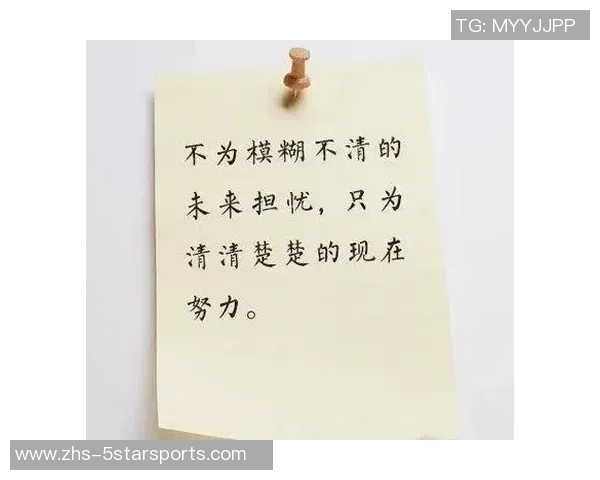 TG: MYYJJPP
不为模糊不清的
未来担忧，只为
清清楚楚的现在
努力。
www.zhs-5starsports.com